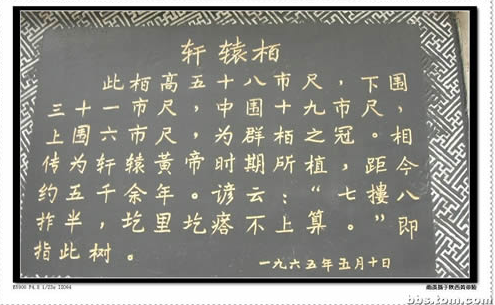 轩辕柏
此柏高五十八市尺，下围
三十一市尺，中围十九市尺，
上围六市尺，为群柏之冠。相
传为轩辕黄帝时期所植，距今
约五千余年。谚云：“七搂八
拃半，圪里圪瘩不上算。”即
指此树。
一九六五年五月十日
bbs.tom.com